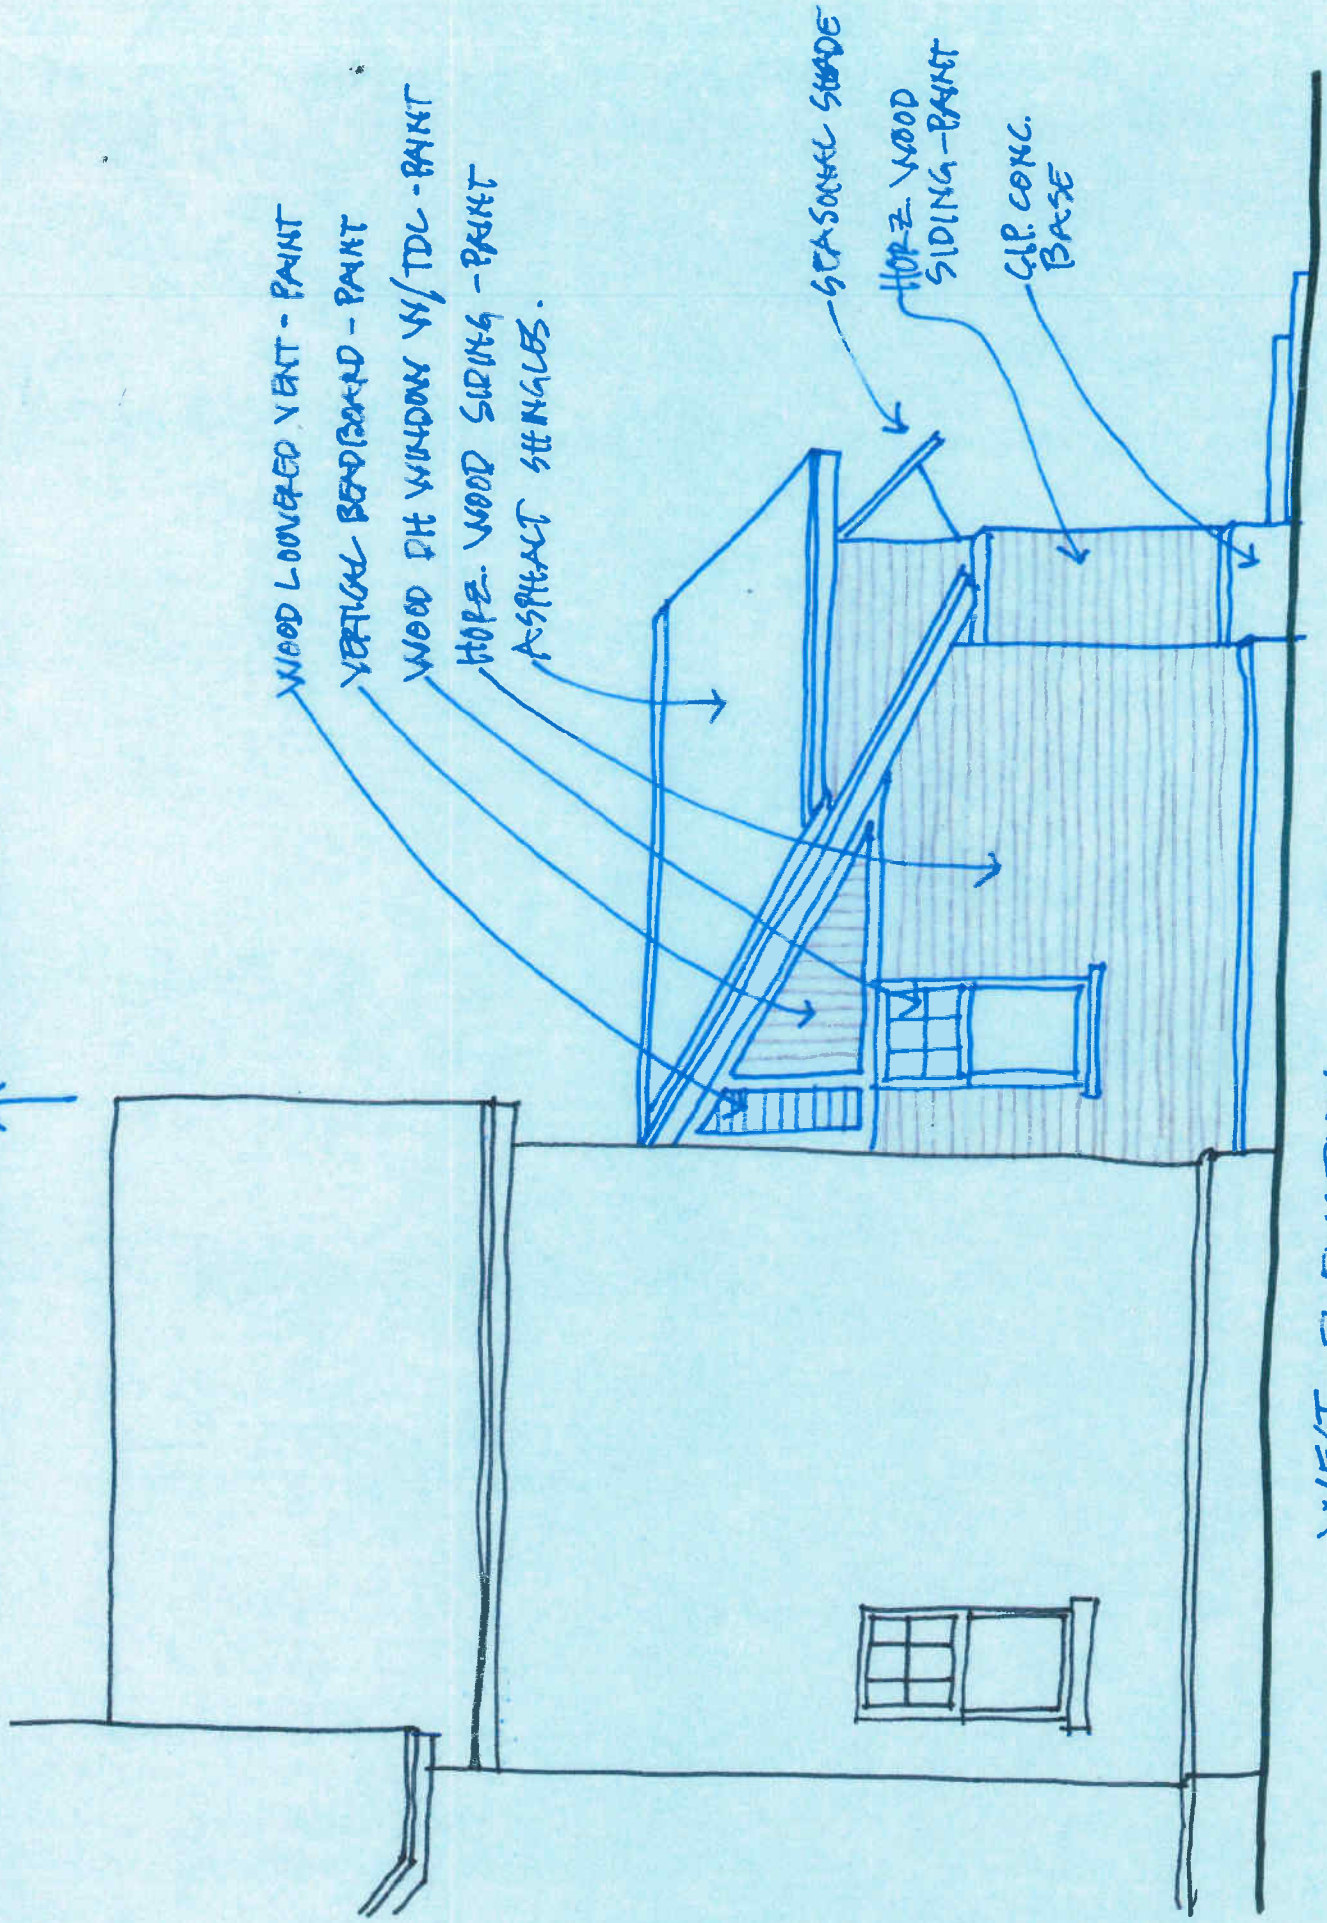 WOOD LOUVERED VENT - PAINT
VERTICAL BEADBOARD - PAINT
WOOD DH WINDOW W/ TDL - PAINT
HORZ. WOOD SIDING - PAINT
ASPHALT SHINGLES.
SEASONAL SHADE
HORZ. WOOD
SIDING - PAINT
C.I.P. CONC.
BASE
WEST ELEVATION